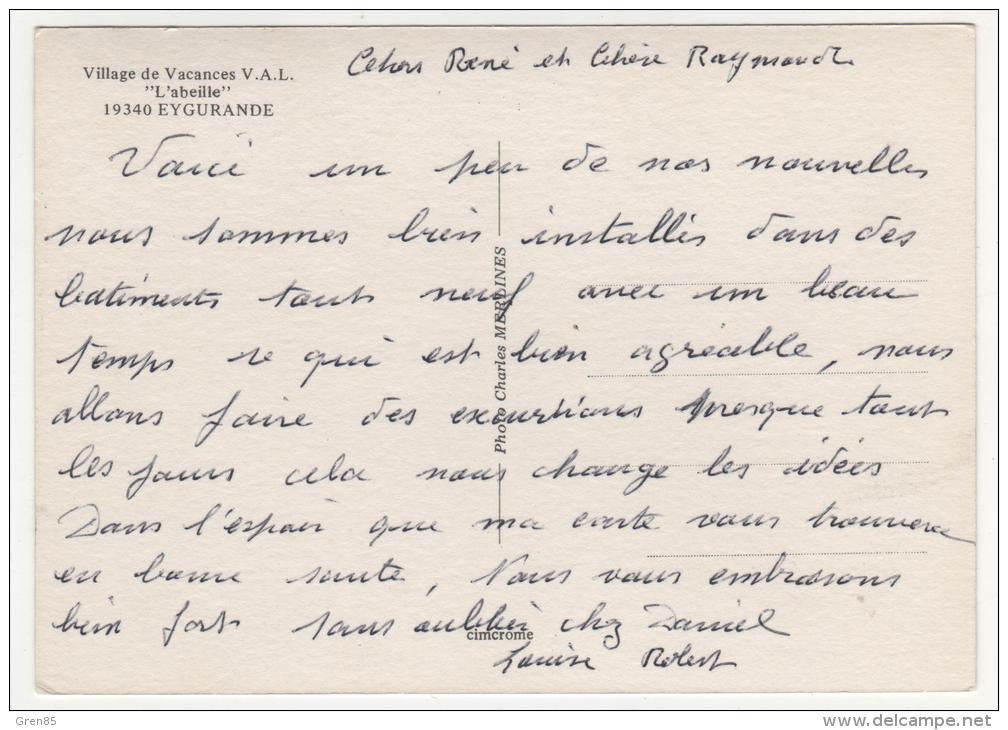 Village de Vacances V.A.L.
"L'abeille"
19340 EYGURANDE
Chers René et Chère Raymonde
Voici un peu de nos nouvelles
nous sommes bien installés dans des
batiments tout neuf avec un beau
temps se qui est bien agréable, nous
allons faire des excurtions presque tout
les jours cela nous change les idées
Dans l'espoir que ma carte vous trouvera
en bonne sante, Nous vous embrasons
bien fort sans oublier chez Daniel
Louise Robert
Photo Charles MERLINES
cimcrome
Gren85
delcampe.net